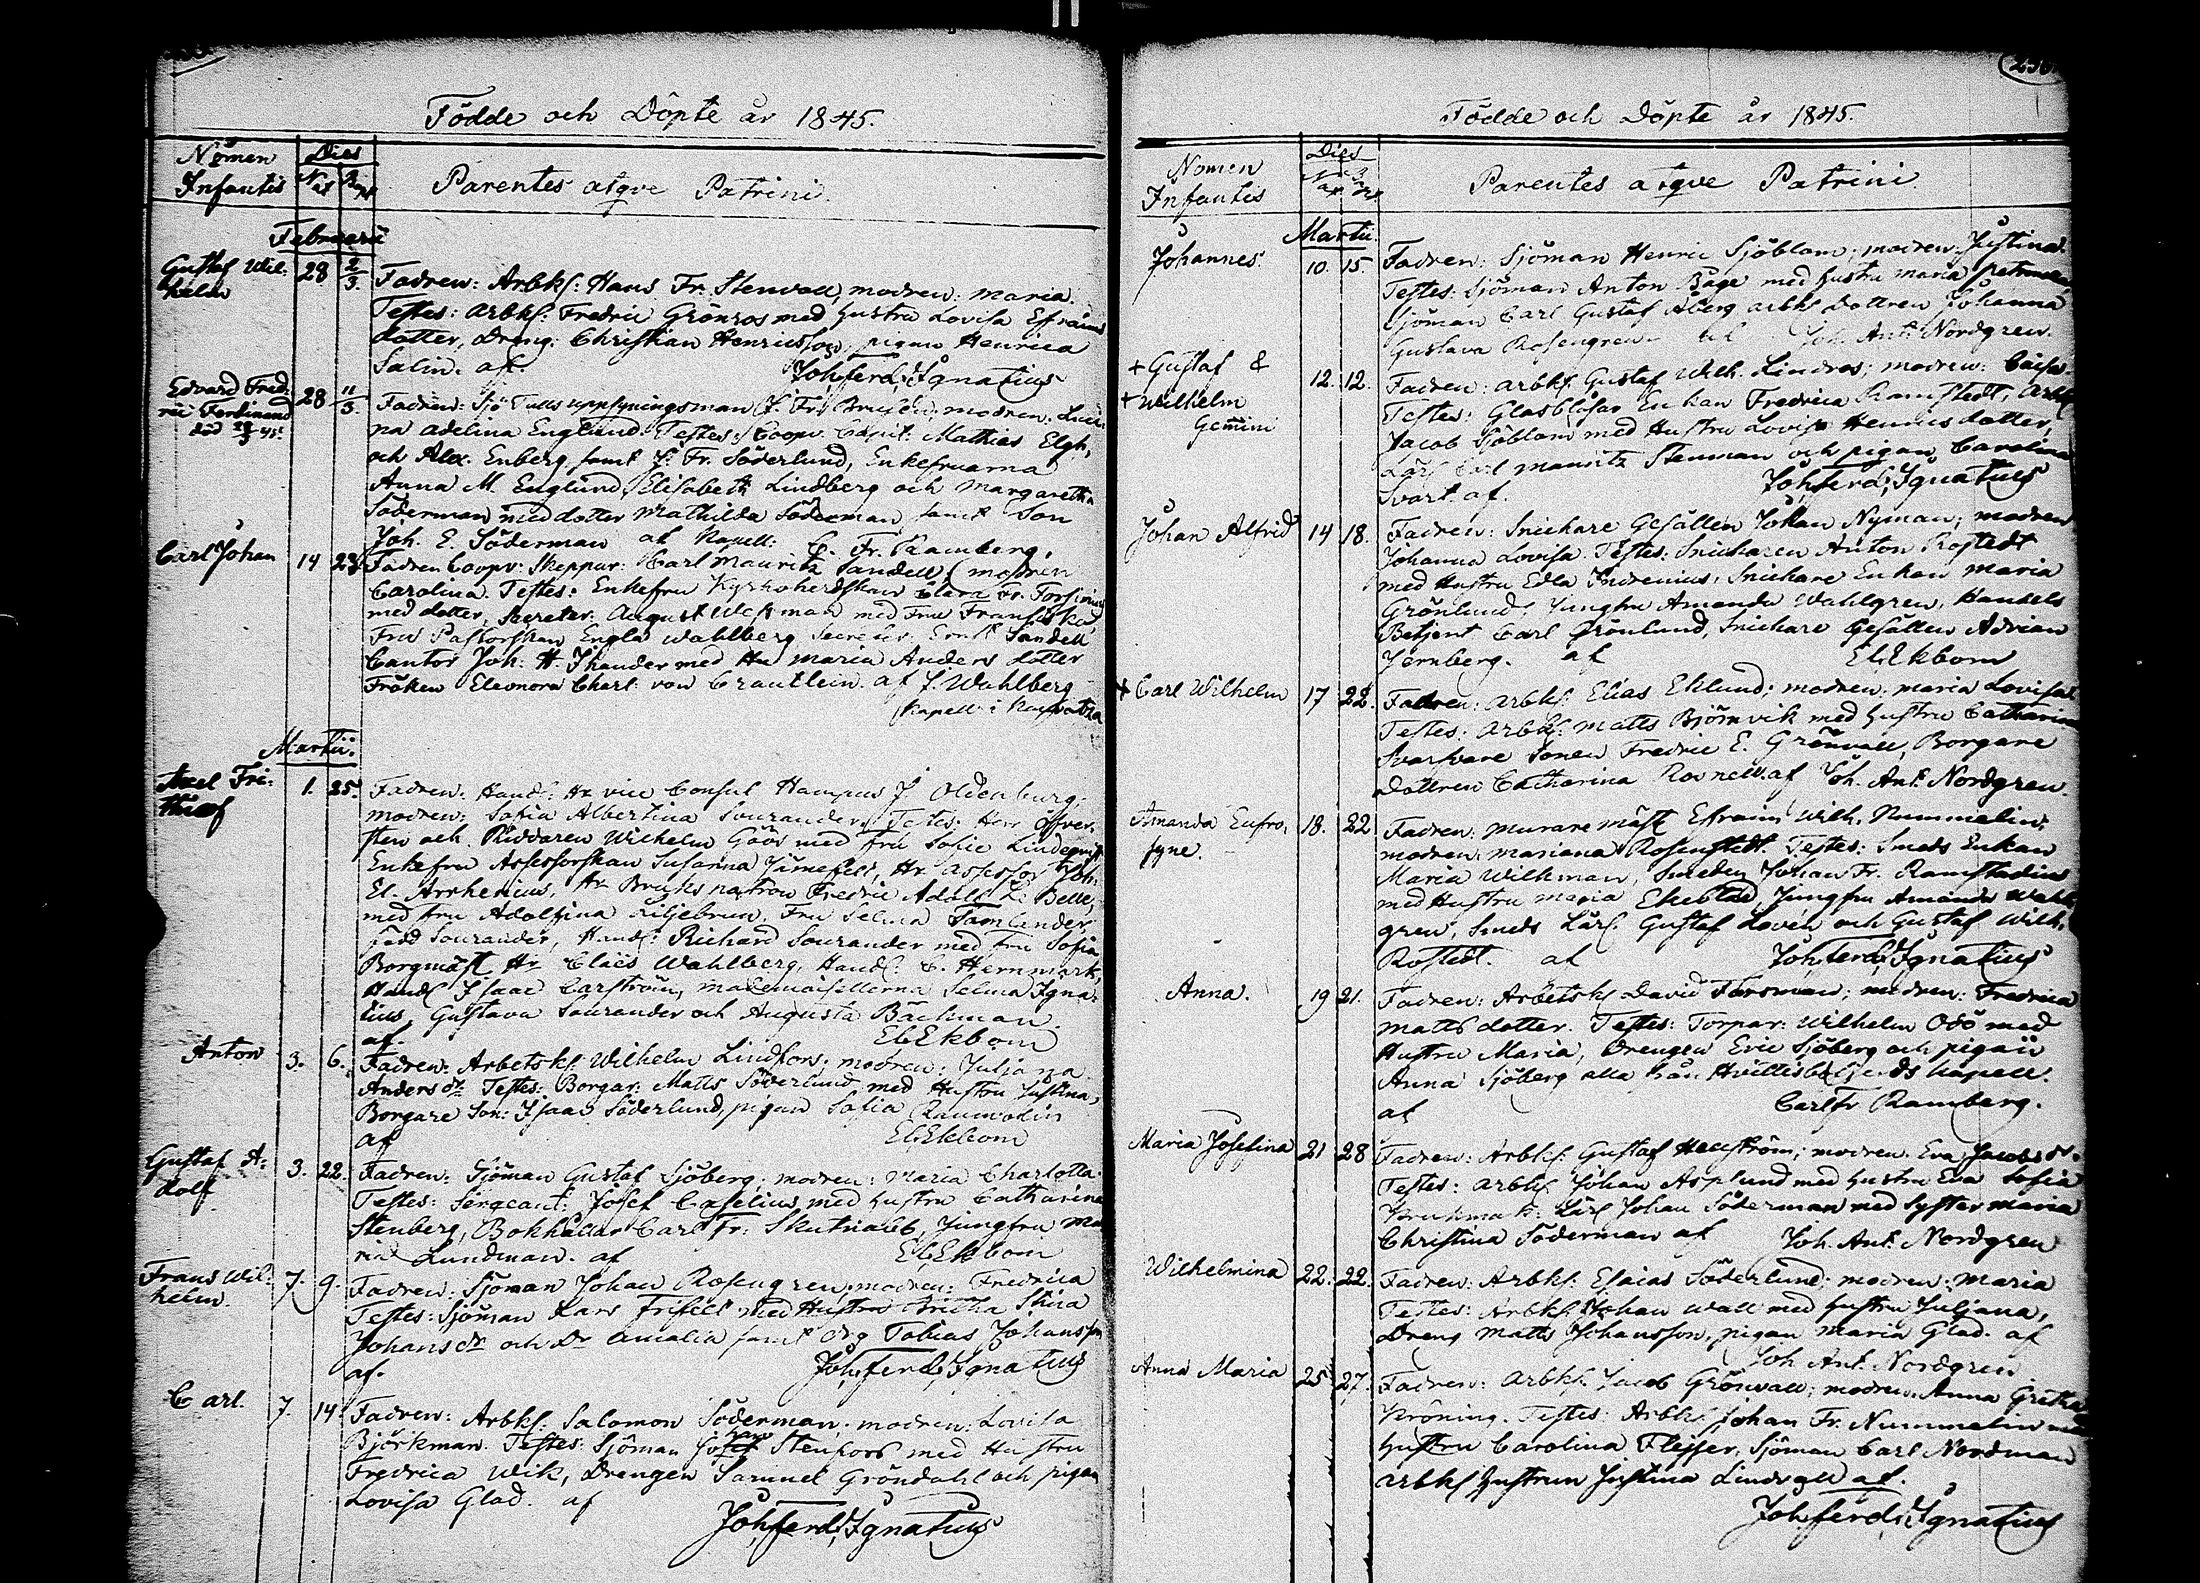 Födde och Döpte år 1845.
Nomen Infantis
Dies
Nat Bapt
Parentes atqve Patrini.
Februarii
Gustaf Wil-
helm
28 2/3.
Fadren: Arbks: Hans Fr. Stenvall, modren: Maria.
Testes: Arbks: Fredric Grönros med hustru Lovisa Efraims
dotter, Dreng: Christian Henricsson, pigan Henrica
Salin. af. Joh. Ferd. Ignatius
Edvard Fred-
ric Ferdinand
28 11/3
Fadren: Sjö Tulls uppsyningsman J. Fr. modren:
na Adelina Englund. Testes: Coopv. Capit: Mathias Elgh,
och Alex. Enberg samt J. Fr. Söderlund, Enkefruarna
Anna M. Englund, Elisabeth Lindberg och Margaretha
Söderman med dotter Mathilda Söderman, samt Son
Joh. E. Söderman af Kapell: C. Fr. Ramberg.
Carl Johan 14 23
Fadren Coopv: Skeppar: Carl Mauritz Sandell modren
Carolina. Testes: Enkefru Kyrkoherdskan Clara Fr.
med dotter, Secreter. August Westman med Fru Fransiska
Fru Pastorskan Engla Wahlberg Ernst Sandell
Cantor Joh: H. Ithander med Hu Maria Anders dotter
Fröken Eleonora Charl: von Crautlein. af J. Wahlberg
Kapell: i
Martii.
Axel Fri-
thiof
1. 25.
Fadren: Handl: Hr vice Consul Hampus J. Oldenburg;
modren: Sofia Albertina Sourander. Testes: Herr Öfver-
sten och Riddaren Wilhelm Göös med fru Sofie Lindeqvist
Enkefru Assessorskan Susanna Järnefelt, Hr Assessor Joh.
El. Arrhenius, Hr Bruks patron Fredric Adolf Le Bell,
med fru Adolfina Liljebrun, Fru Selma Tamlander
född Sourander, Handl: Richard Sourander med fru Sofia
Borgmäst Hr Claës Wahlberg, Handl: C. Hernmark,
Handl Isaac Carström, mademoisellerna Selma Igna-
tius, Gustava Sourander och Augusta Bäckman
af. El. Ekbom
Anton 3. 6.
Fadren: Arbetsk: Wilhelm Lindfors; modren: Juliana
Anders dr Testes: Borgar: Matts Söderlund med Hustru Justina,
Borgare Son: Isaac Söderlund, pigan Sofia Raumolin
af El. Ekbom
Gustaf A-
dolf
3. 22.
Fadren: Sjöman Gustaf Sjöberg; modren: Maria Charlotta
Testes: Sergeant: Josef Caselius, med hustru Catharina
Stenberg, Bokhållar Carl Fr: Skutnabb, Jungfru Ma
ria Lundman. af El. Ekbom
Frans Wil-
helm.
7. 9.
Fadren: Sjöman Johan Rosengren, modren: Fredrica
Testes: Sjöman Lars Frisell med Hustru Britha Stina
Johans dr och Dr Amalia samt drg Tobias Johansson
af. Joh. Ferd. Ignatius
Carl. 7. 14
Fadren: Arbks: Salomon Söderman, modren: Lovisa
Björkman. Testes: Sjöman Stenfors med Hustru
Fredrica Wik, Drengen Samuel Gröndahl och pigan
Lovisa Glad. af
Joh. Ferd. Ignatius
Födde och Döpte år 1845.
Nomen
Infantis
Dies
Parentes atqve Patrini.
Martii.
Johannes 10. 15.
Fadren: Sjöman Henric Sjöblom; modren: Justina.
Testes: Sjöman Anton Båge med hustru Maria
Sjöman Carl Gustaf Åberg arbks dottren Johanna
Gustava Rosengren af Joh. Ant. Nordgren.
+ Gustaf &
+ Wilhelm
Gemini
12. 12.
Fadren: arbks: Gustaf Wilh. Lindros; modren: Caisa.
Testes: Glasblåsar Enkan Fredrica Ramstedt, Arbks
Jacob Sjöblom med Hustru Lovisa Henrics dotter,
Lärl Carl Mauritz Stenman och pigan Carolina
Svart. af. Joh. Ferd. Ignatius
Johan Alfrid 14 18.
Fadren: Snickare Gesällen Johan Nyman; modren
Johanna Lovisa. Testes: Snickaren Anton Rostedt
med Hustru Edla Indrenius, Snickare Enkan Maria
Grönlund, Jungfru Amanda Wahlgren, Handels
Betjent Carl Grönlund, Snickare Gesällen Adrian
Jernberg. af El. Ekbom
+ Carl Wilhelm 17 22.
Fadren: Arbks: Elias Eklund; modren: Maria Lovisa.
Testes: Arbks: Matts Björnvik med hustru Catharina
Svarfvare Sonen Fredric E. Grönvall, Borgare
Dottren Catharina Rosnell. af Joh. Ant. Nordgren.
Amanda Eufro-
syne.
18. 22
Fadren: Murare mäst Efraim Wilh. Nummelin;
modren: Mariana Rosenstedt. Testes: Smeds Enkan
Maria Wilkman, Smeden Johan Fr. Ramstadius
med Hustru Maria Ekeblad, Jungfru Amanda Wahl
gren, Smeds Lärl. Gustaf Lovén och Gustaf Wilh.
Rostedt. af Joh. Ferd. Ignatius
Anna. 19 21.
Fadren: Arbetsk David Forsman; modren: Fredrica
Matts dotter. Testes: Torpar: Wilhelm Odö med
Hustru Maria, Drengen Eric Sjöberg och pigan
Anna Sjöberg alla från Hvittisbofjerds kapell.
af Carl Fr Ramberg.
Maria Josefina 21 28
Fadren: Arbks: Gustaf Hellström; modren: Eva Jacobs dr.
Testes: Arbks Johan Asplund med hustru Eva Sofia
Lärl Johan Söderman med Syster Maria
Christina Söderman af Joh. Ant. Nordgren
Wilhelmina 22. 22.
Fadren: Arbks: Esaias Söderlund; modren: Maria
Testes: Arbks Johan Wall med hustru Juliana,
Dreng Matts Johansson, pigan Maria Glad. af
Joh Ant. Nordgren
Anna Maria 25 27.
Fadren: Arbks. Jacob Grönvall; modren: Anna Greta
Kröning. Testes: Arbks Johan Fr. Nummelin med
hustru Carolina Flejser, Sjöman Carl Nordman
arbks hustrun Justina Lindvall af.
Joh. Ferd. Ignatius